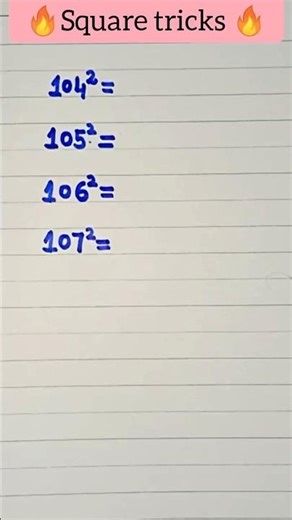 🔥Square tricks 🔥
104²=
105²=
106²=
107²=